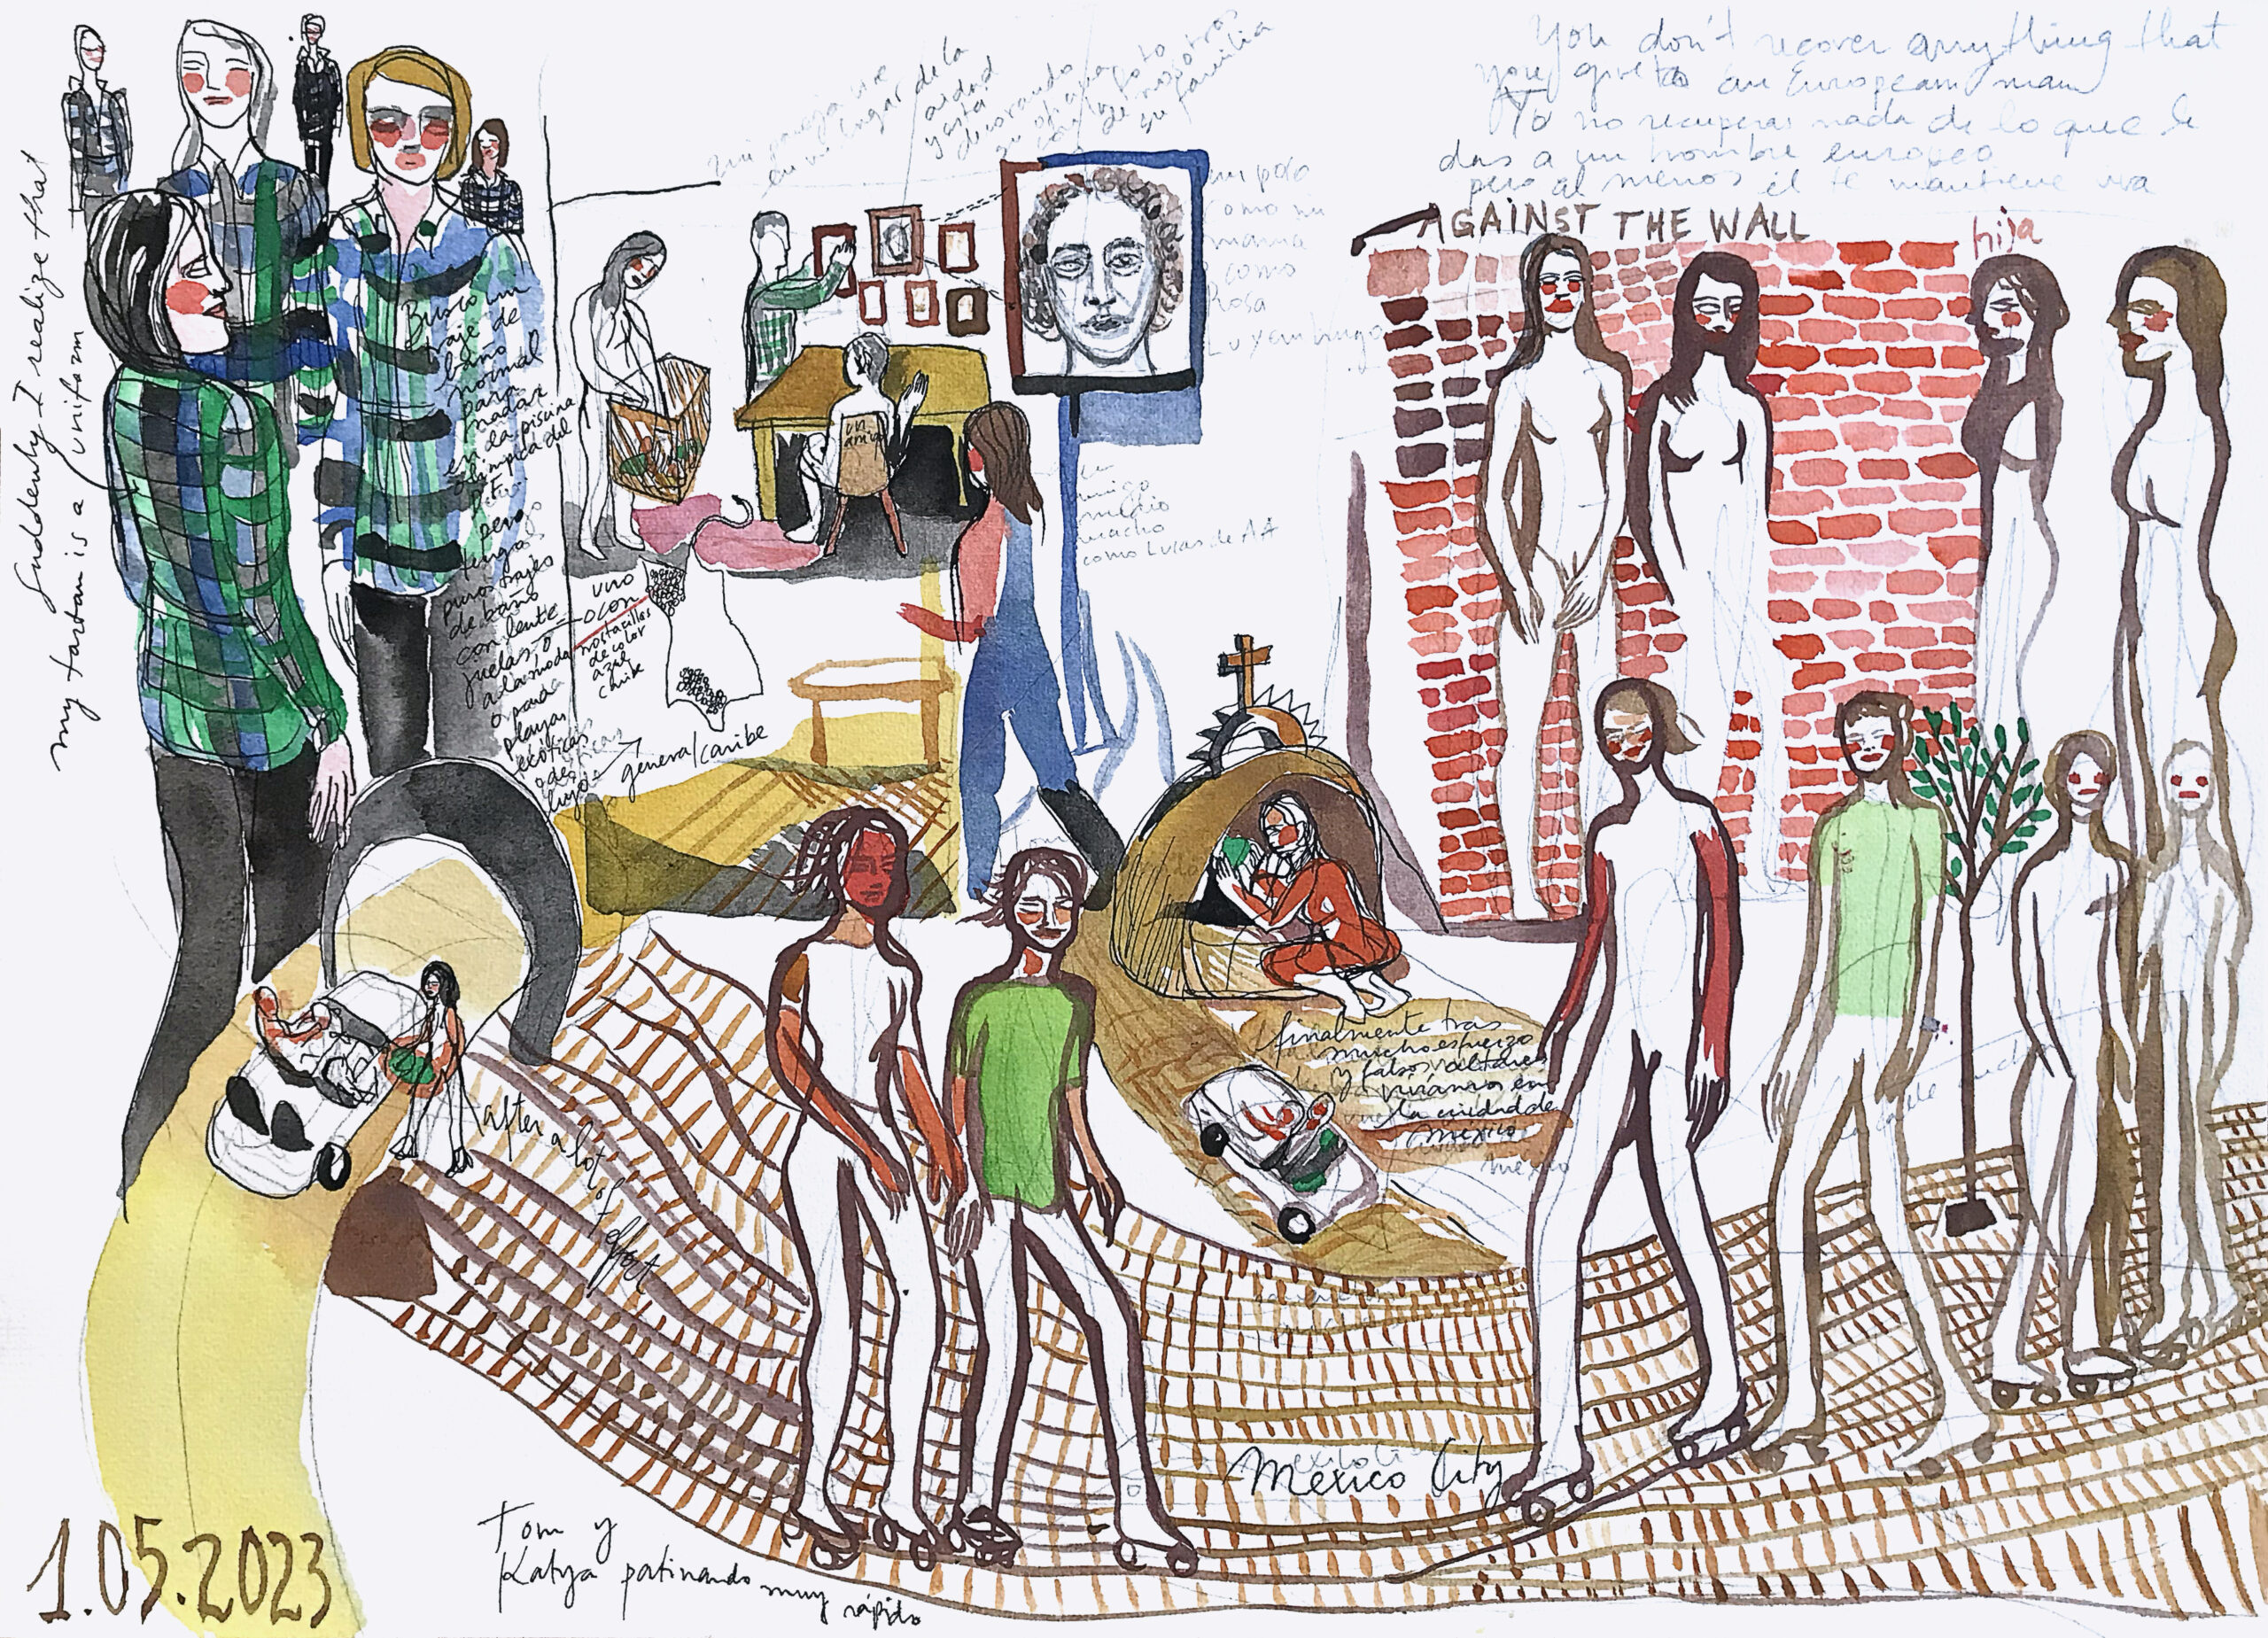 Suddenly I realize that
my tartan is a uniform
Busco un
traje de
baño
normal
para
nadar
en la piscina
olímpica del
pero
tengo
puros trajes
de baño
con lente
juelas, o
a la moda
o para
playas
exóticas
o de
lujo
uno
o con
de color
azul
caribe
general caribe
mi pareja vive
en mi lugar de la
y está
decorando
su
familia
un poco
como mi
mamá
como
Rosa
Luxemburgo
un
amigo
amigo
medio
macho
como Lucas de AA
You don't recover anything that
you give to an European man
Tú no recuperas nada de lo que le
das a un hombre europeo
pero al menos él te mantiene viva
AGAINST THE WALL
hija
finalmente tras
mucho esfuerzo
y falsos altares
vivimos en
la ciudad de
México
México
after a lot
of
effort
México City
Tom y
Katya patinando muy rápido
1.05.2023